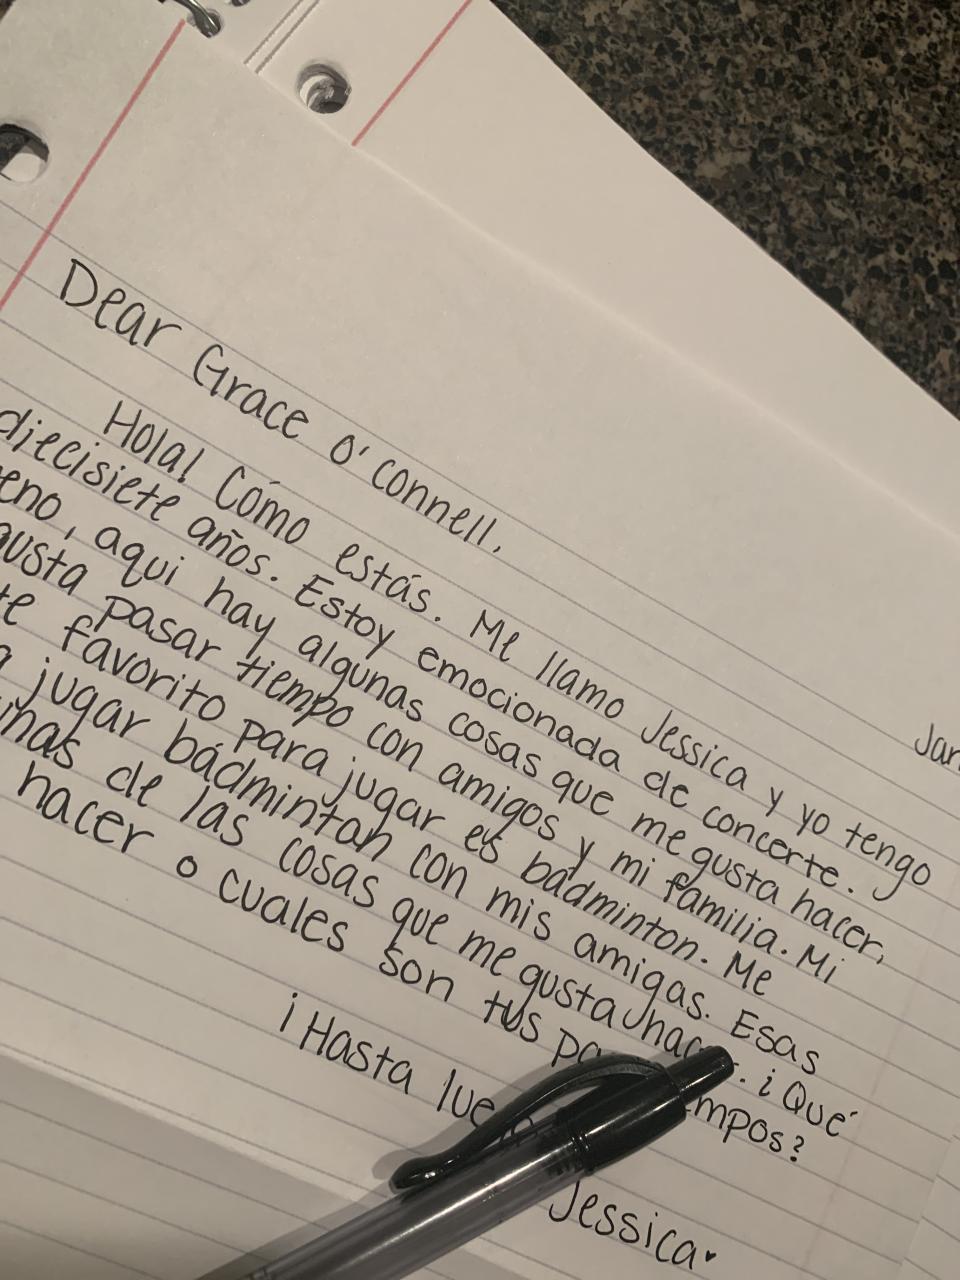 Jan
Dear Grace O'Connell,
Hola! Cómo estás. Me llamo Jessica y yo tengo
diecisiete años. Estoy emocionada de concerte.
eno, aqui hay algunas cosas que me gusta hacer,
gusta pasar tiempo con amigos y mi familia. Mi
te favorito para jugar es bádminton. Me
a jugar bádmintan con mis amigas. Esas
unas de las cosas que me gusta hac . ¡Qué
hacer o cuales son tus pa empos?
¡Hasta lue
Jessica